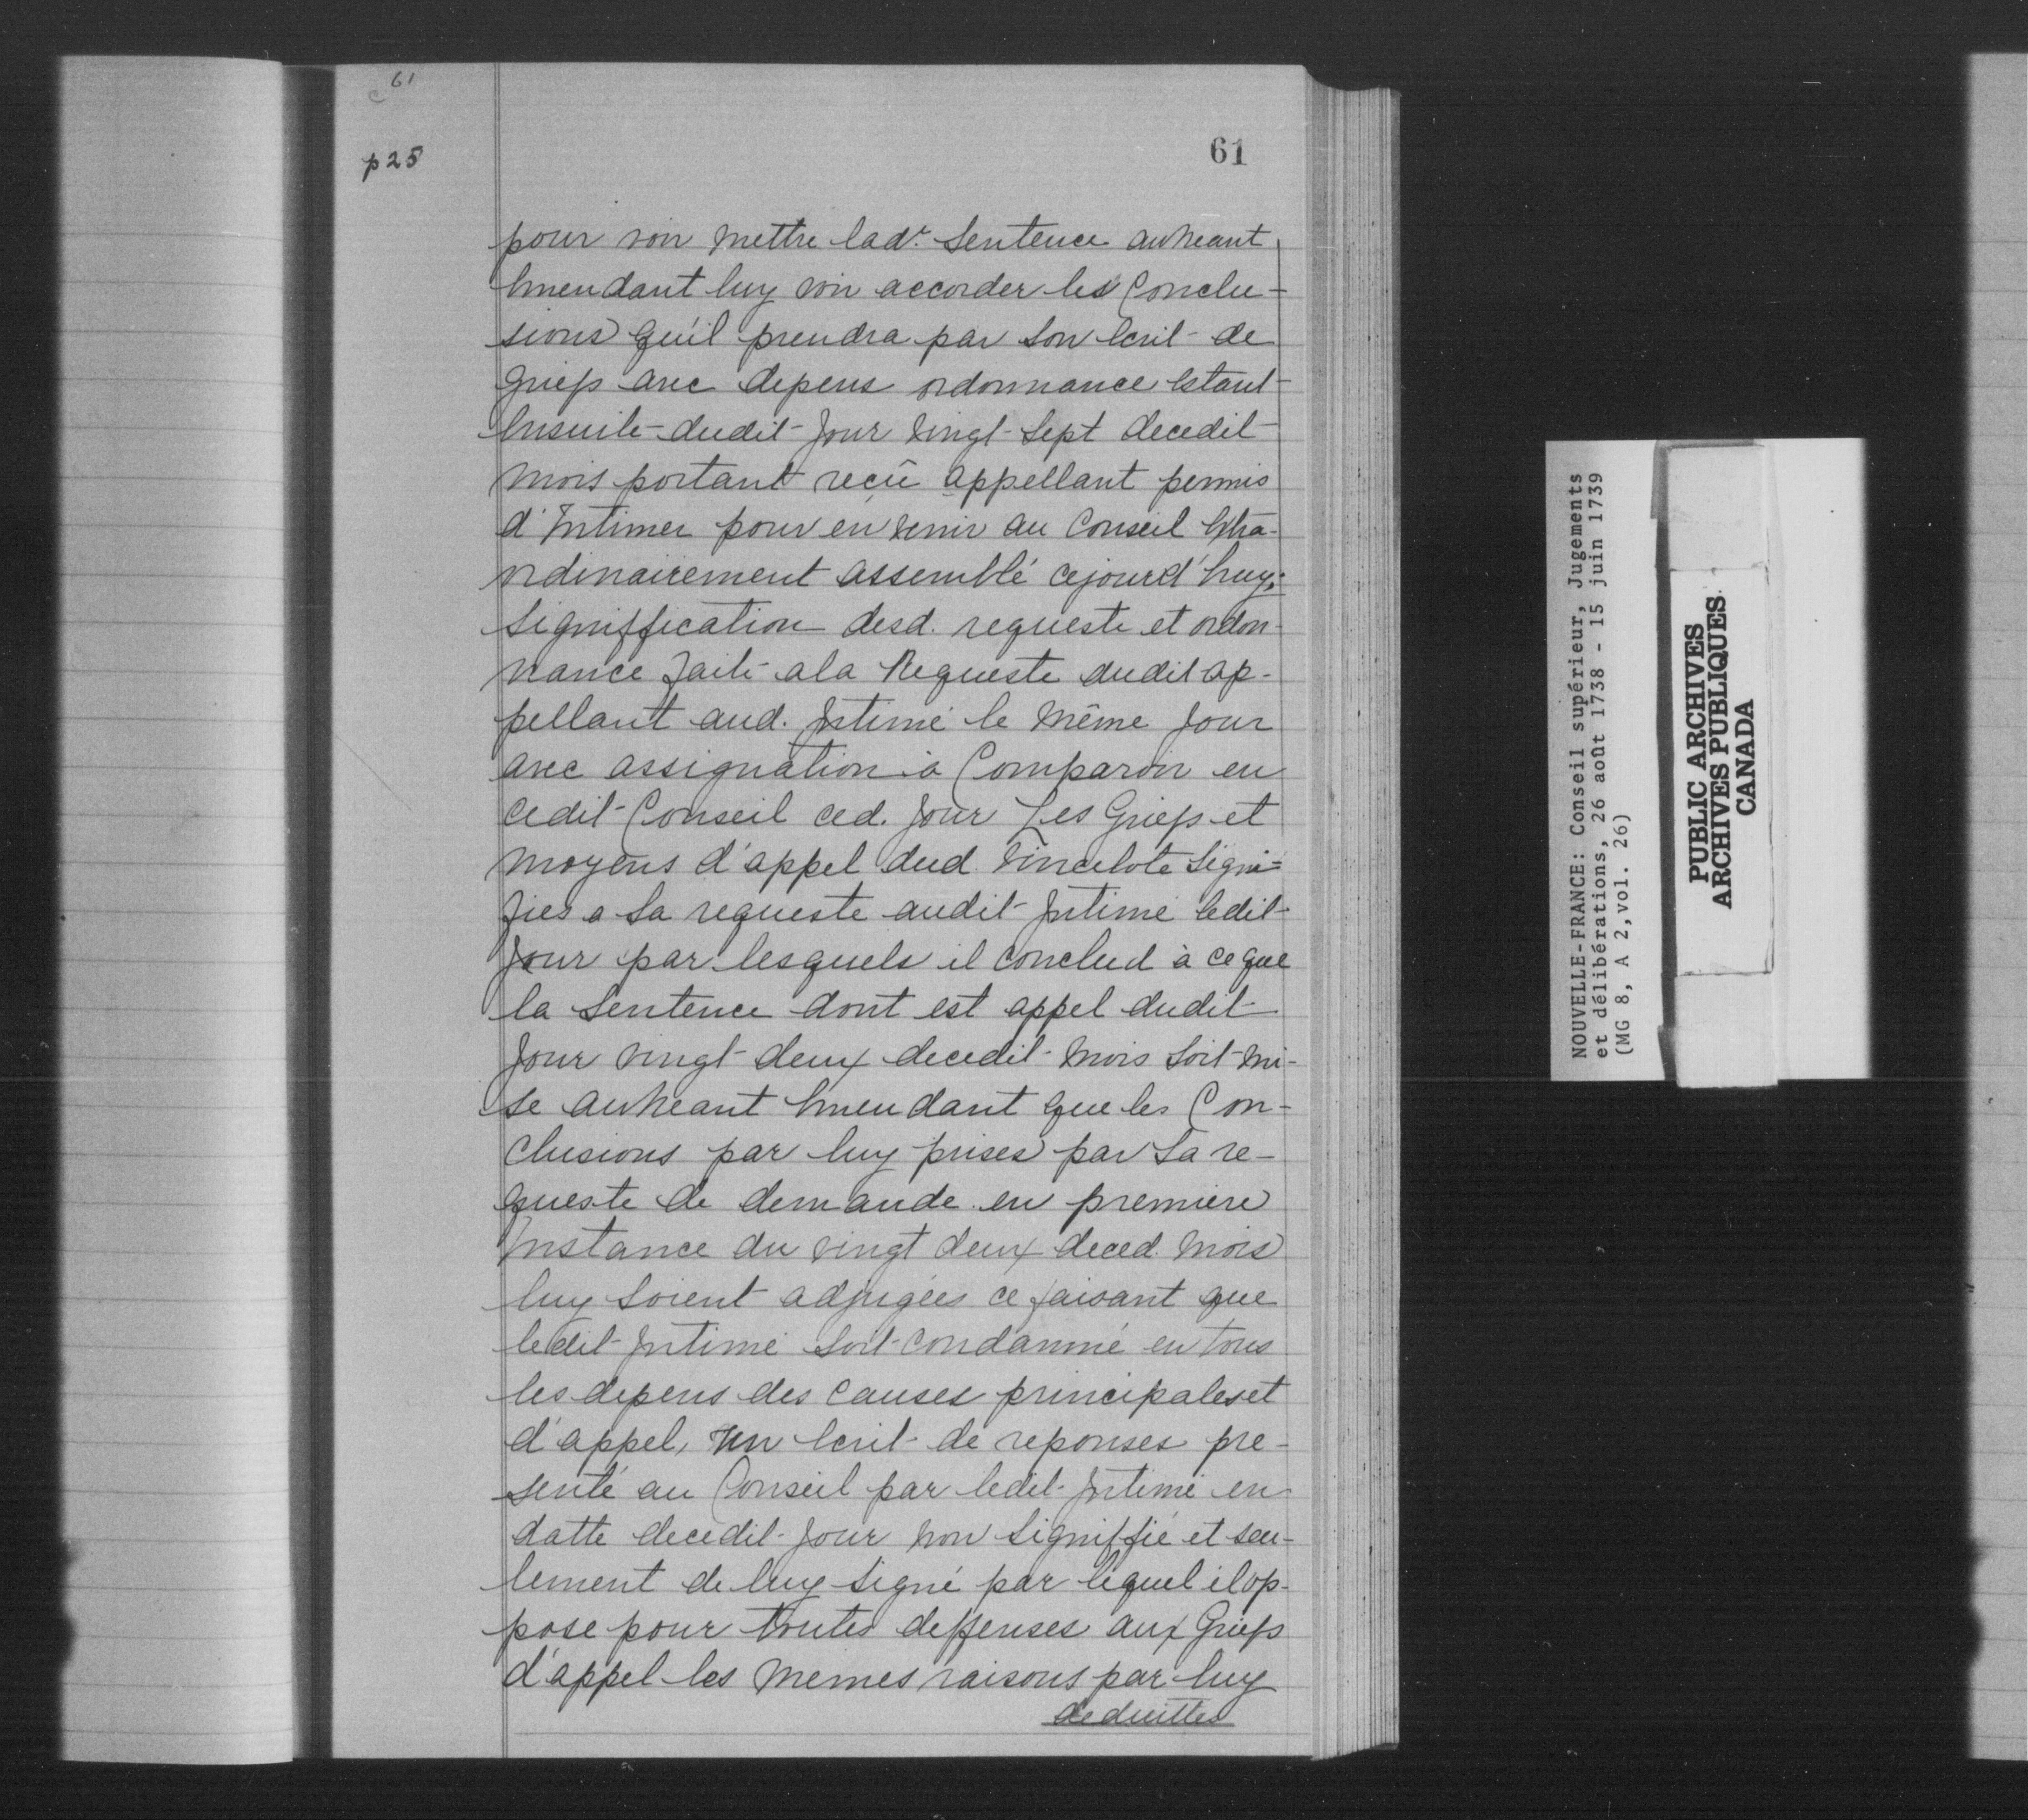 61
p 25
61
pour voir mettre lad.t Sentence au neant
Emendant luy voir accorder les Conclu-
sions qu'il prendra par Son Ecrit de
Griefs avec depens ordonnance Estant
Ensuite dudit Jour vingt Sept decedit
mois portant reçû appellant permis
d'Intimer pour en venir au Conseil Extra-
ordinairement assemblé cejourd'huy;
Signiffication desd. requeste et ordon-
nance Faite a la Requeste dudit ap-
pellant aud. Intimé le même Jour
avec assignation à Comparoir en
cedit Conseil ced. Jour Les Griefs et
moyens d'appel dud. Vincelote Signi=
fies a Sa requeste audit Intimé ledit
Jour par lesquels il conclud à ce que
la Sentence dont est appel dudit
Jour vingt deux decedit mois Soit mi-
se au neant Emendant que les Con-
clusions par luy prises par Sa re-
queste de demande en premiere
Instance du vingt deux deced. mois
luy Soient adjugées ce faisant que
ledit Intimé Soit condamné en tous
les depens des causes principales et
d'appel, un Ecrit de reponses pre-
senté au Conseil par ledit Intimé en
datte decedit Jour non Signiffié et seu-
lement de luy Signé par lequel il op-
pose pour toutes deffenses aux Griefs
d'appel les memes raisons par luy
deduittes
NOUVELLE-FRANCE: Conseil supérieur, Jugements
et délibérations, 26 août 1738 - 15 juin 1739
(MG 8, A 2,vol. 26)
PUBLIC ARCHIVES
ARCHIVES PUBLIQUES
CANADA